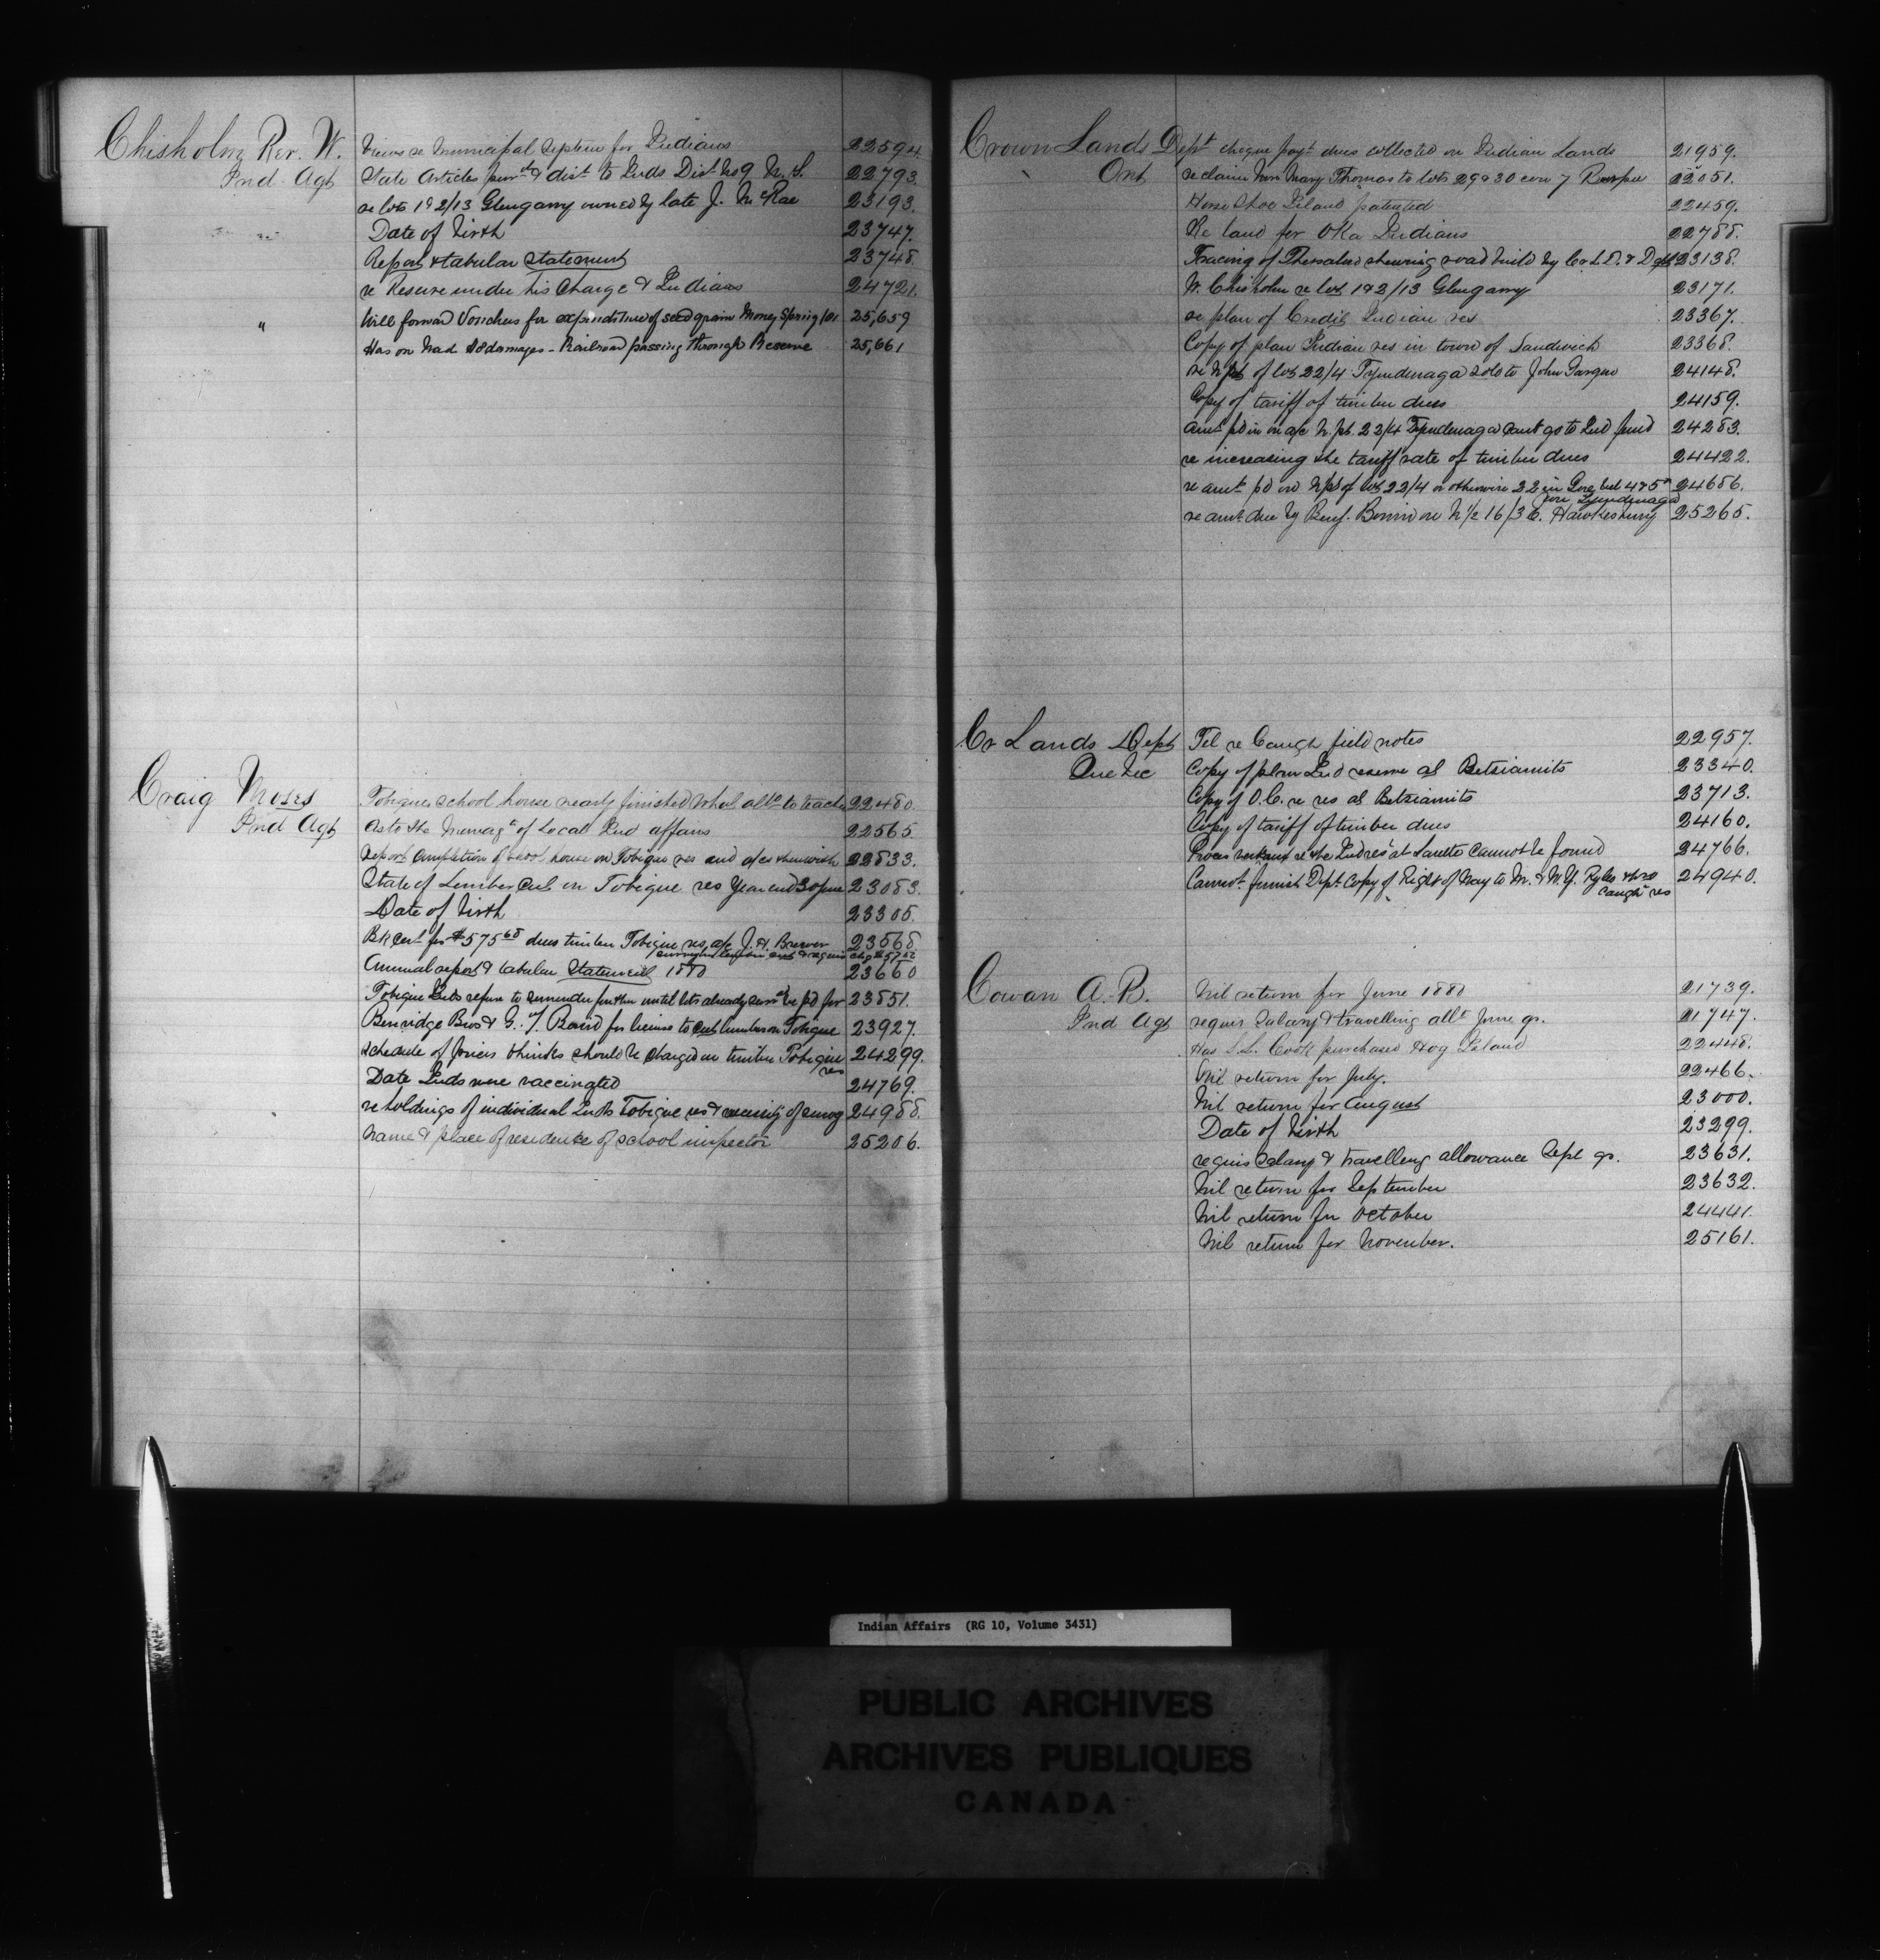 Chisholm Rev. W.
Ind. Agt
Views re Municipal System for Indians 22594.
State Articles pur & dist to Inds Dist No 9 N.S. 22793.
re lots 1 & 2/13 Glengarry owned by late J. McRae 23193.
Date of birth 23747.
Report & tabular statement 23748.
re Reserve under his charge & Indians 24721.
" Will forward Vouchers for expenditure of seed grain money Spring 25,659
Has on had damages - Railroad passing through Reserve 25,661
Craig Moses
Ind Agt
Tobique school house nearly finished what allce to teacher 22480.
As to the Managt of Local Ind affairs 22565.
Report completion of school house on Tobique res and a/cs therewith 22833.
State of Lumber Cut on Tobique res year end 30 June 23083.
Date of birth 23305.
Bk Cert for $575 68 dues timber Tobique res a/c J. H. Brewer 23568
Annual report & tabular Statement 1880 23660
Tobique Inds refuse to surrender further until lots already surrd be pd for 23851.
Bros & G. T. Baird for license to cut lumber on Tobique 23927.
Schedule of prices thinks should be charged on timber Tobique res 24299.
Date Inds were vaccinated 24769.
re holdings of individual Inds Tobique res & necessity of survey 24988.
Name & place of residence of school inspector 25206.
Crown Lands Dept
Ont
cheque payt dues collected on Indian Lands 21959.
re claim Mary Thomas to lots 29 & 30 con 7 22051.
Horse Shoe Island patented 22459.
Re land for Oka Indians 22788.
Tracing of Thessalon shewing road built by Cr. L. D. 23138.
W. Chisholm re lots 1 & 2/13 Glengarry 23171.
re plan of Credit Indian res 23367.
Copy of plan Indian res in town of Sandwich 23368.
re N pt of lot 22/4 Tyendenaga sold to John 24148.
Copy of tariff of timber dues 24159.
amt pd in on a/c N. pt. 22/4 Tyendenaga cant go to Ind fund 24283.
re increasing the tariff rate of timber dues 24422.
re amt pd on N pt of lot 22/4 or otherwise 22 in Gore bet 4 & 5 con Tyendenaga 24686.
re amt due by Benj. on N 1/2 16/3 E. Hawkesbury 25265.
Cr Lands Dept
Quebec
Tel re Caugh field notes 22957.
Copy of plan Ind reserve at Betsiamits 23340.
Copy of O.C. re res at Betsiamits 23713.
Copy of tariff of timber dues 24160.
Proces verbaux re the Ind res at Saulte cannot be found 24766.
Cannot furnish Dept Copy of Right of Way to M. & N.Y. Ry Co thro Caugh res 24940.
Cowan A. B.
Ind Agt
Nil return for June 1880 21739.
requis Salary & travelling allce June qr. 21747.
Has S. L. Cook purchased Hog Island 22448.
Nil return for July. 22466.
Nil return for August 23000.
Date of birth 23299.
requis Salary & travelling allowance Sept qr. 23631.
Nil return for September 23632.
Nil return for October 24441.
Nil return for November. 25161.
Indian Affairs (RG 10, Volume 3431)
PUBLIC ARCHIVES
ARCHIVES PUBLIQUES
CANADA